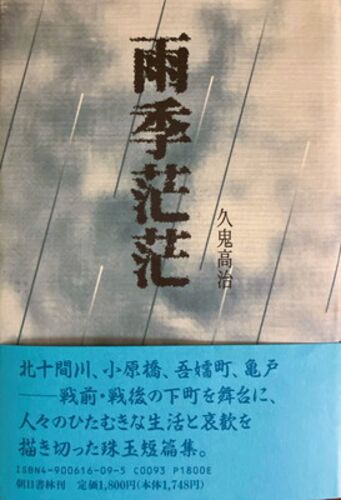 雨季茫茫
久鬼高治
北十間川、小原橋、吾嬬町、亀戸
――戦前・戦後の下町を舞台に、
人々のひたむきな生活と哀歓を
描き切った珠玉短篇集。
ISBN4-900616-09-5 C0093 P1800E
朝日書林刊 定価1,800円(本体1,748円)